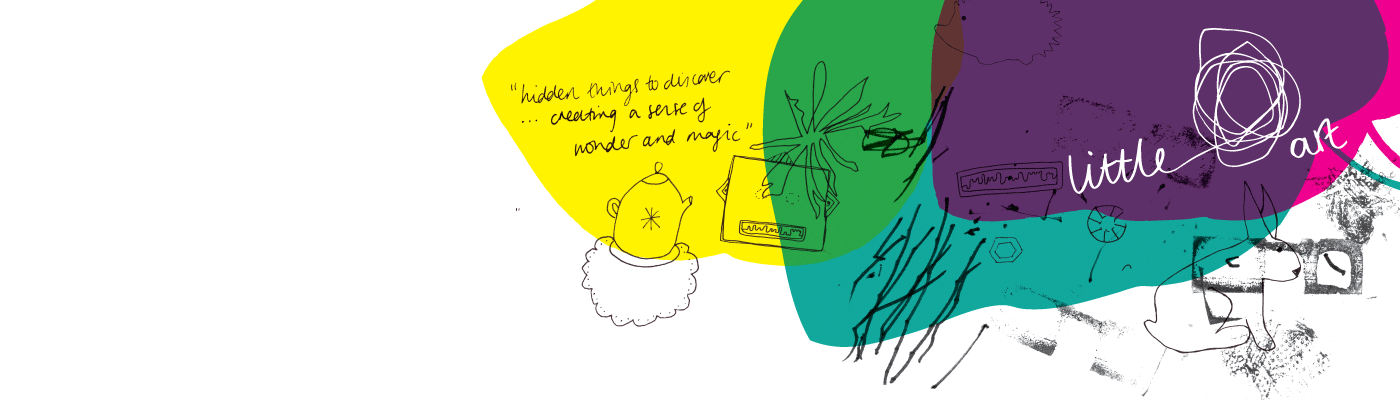 "hidden things to discover
... creating a sense of
wonder and magic"
little art